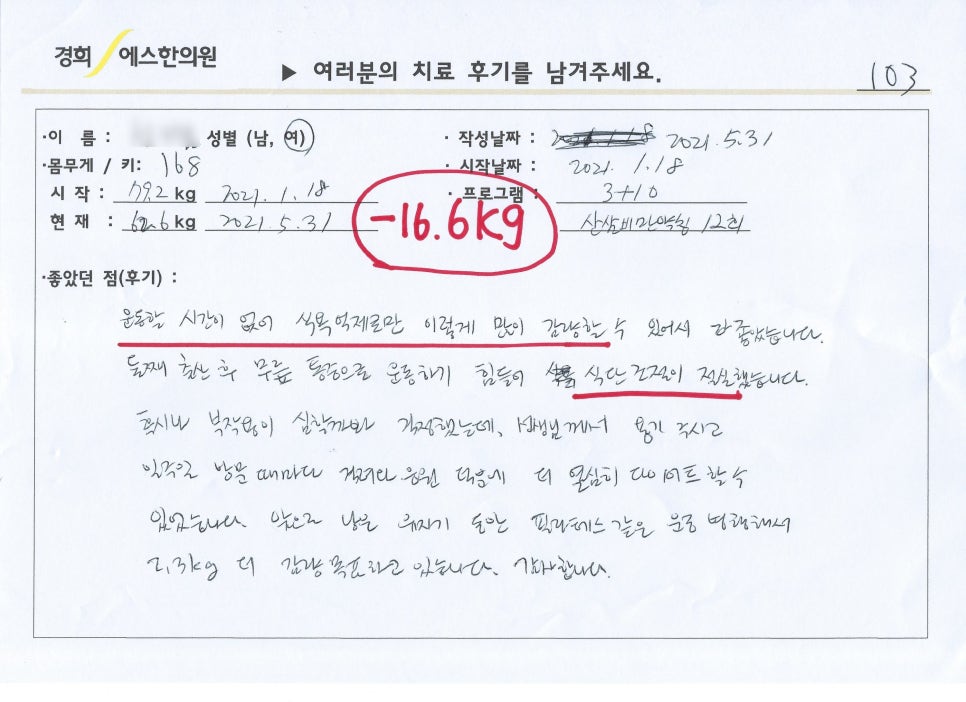 경희 에스한의원
▶ 여러분의 치료 후기를 남겨주세요.
103
·이 름 : 성별 (남, 여)
·작성날짜 : 2021.5.31
·몸무게 / 키: 168
·시작날짜 : 2021.1.18
시 작 : 79.2 kg 2021.1.18
·프로그램 : 3+10
현 재 : 62.6 kg 2021.5.31
-16.6kg
산삼비만약침 12회
·좋았던 점(후기) :
운동할 시간이 없어 식욕억제로만 이렇게 많이 감량할 수 있어서 좋았습니다.
둘째 출산 후 무릎 통증으로 운동하기 힘들어 식단조절이 절실했습니다.
혹시나 부작용이 심할까봐 걱정했는데, 선생님께서 용기 주시고
일주일 방문 때마다 격려와 응원 덕분에 더 열심히 다이어트 할 수
있었습니다. 앞으로 남은 유지기 동안 필라테스 같은 운동 병행해서
2,3kg 더 감량 목표하고 있습니다. 감사합니다.